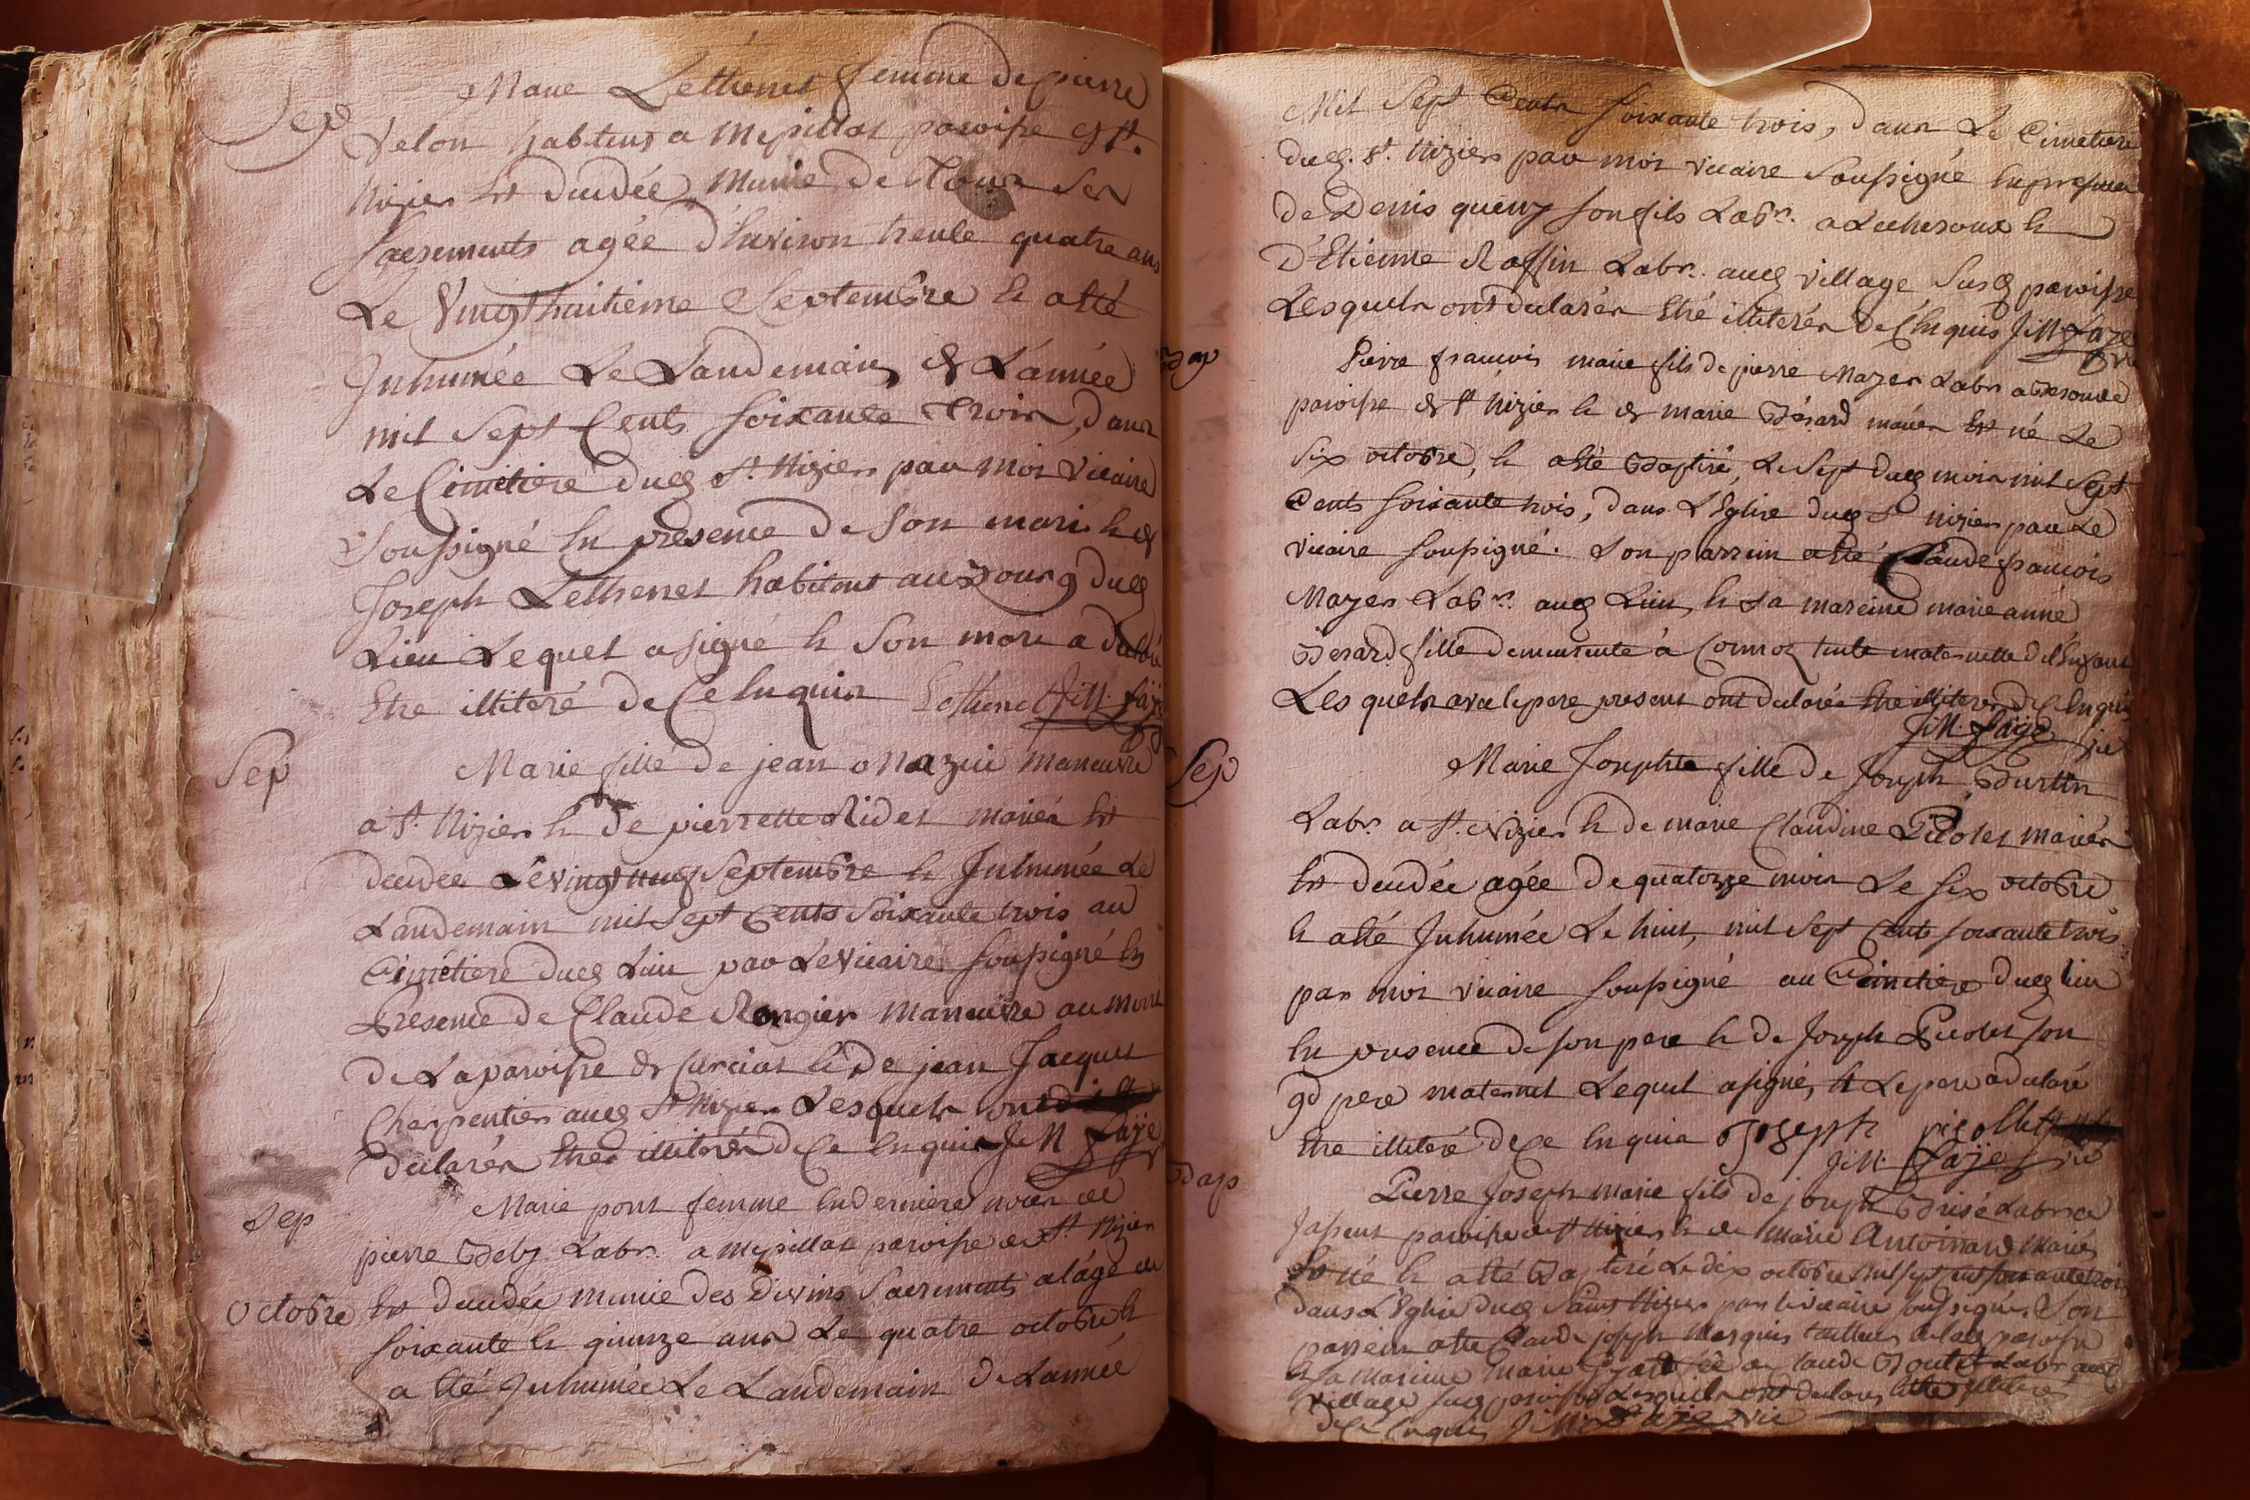 Sep
Marie Lethenet femme de pierre
Velon habitens a mepillat paroisse de st.
Nizier Est decedée, munie de Tous Ses
sacrements agée d'Environ trente quatre ans
Le Vingthuitieme Septembre et a Eté
Inhumée Le Landemain de L'année
mil Sept Cents soixante Trois, dans
Le Cimetiere dud St. Nizier par moi Vicaire
soussigné En presence de son mari et de
Joseph Lethenet habitant au Bourg dud
Lieu Lequel a signé et son mari a declaré
Etre illiteré de Ce Enquis Lethenet J: M: faÿe
Sep
Marie fille de jean mazuir maneuvre
a St. Nizier et de pierrette Ridet mariés Est
decedée Le vingt neuf Septembre et Inhumée Le
Landemain mil Sept Cents Soixante trois au
Cimetiere dud Lieu par Le Vicaire soussigné En
Presence de Claude Rongier maneuvre au
de La paroisse de Curciat et de jean Jacquet
Charpentier aud St Nizier Lesquels ont
declarés Etres illiterés de Ce Enquis J: M faÿe
Sep
Marie pont femme En derniere noces de
pierre Deby Labr. a mepillat paroisse de St. Nizier
Octobre Est decedée munie des divins Sacrements a l'age de
soixante et quinze ans Le quatre octobre et
a Eté Inhumée Le Landemain de L'année
Mil Sept Cents soixante trois, dans Le Cimetiere
dud. St. Nizier par moi vicaire soussigné En presence
de Denis son fils Labr. a et
D'Etienne Roffin Labr. aud village Susd paroisse
Lesquels ont declarés Etré illiterés de C Enquis J: M: faÿe
vic
Bap
Pierre francois marie fils de pierre Mayer Labr a
paroisse de St Nizier et de marie Bérard mariés Est né Le
six octobre, et a Eté Baptisé, Le Sept dud mois mil Sept
Cents soixante trois, dans L'Eglise dud St nizier par Le
vicaire soussigné. Son parrein a Eté Claude francois
Mayer Labr. aud Lieu, et sa mareine marie anne
Berard fille demeurente à Cormoz tente maternelle de l'Enfant
Lesquels avec le pere present ont declarés Etre illiterés de C Enquis
J: M: faÿe vic
Sep
Marie Josephte fille de Joseph Burtin
Labr. a St. Nizier et de marie Claudine Picolet mariés
Est decedée agée de quatorze mois Le six octobre
et a Eté Inhumée Le huit, mil Sept Cents soixante trois
par moi vicaire soussigné au Cimetiere dud lieu
En presence de son pere et de Joseph Picolet son
gd pere maternel Lequel a signé, et Le pere a declaré
Etre illiteré de Ce Enquis Joseph picollet
J: M: faÿe vic
Bap
Pierre Joseph marie fils de joseph Brisé Labr a
paroisse de St Nizier et de marie Antoinard mariés
Est né et a Eté Baptisé Le dix octobre mil sept cent soixante trois
dans L'Eglise dud Saint Nizier par le vicaire soussigné. Son
parrein a Eté Claude joseph Marquis tailleur de lad paroisse
et sa mareine marie a Claude Boutet Labr aud
village susd paroisse Lesquels ont declarés Etre illiterés
de Ce Enquis J: M: faÿe vic